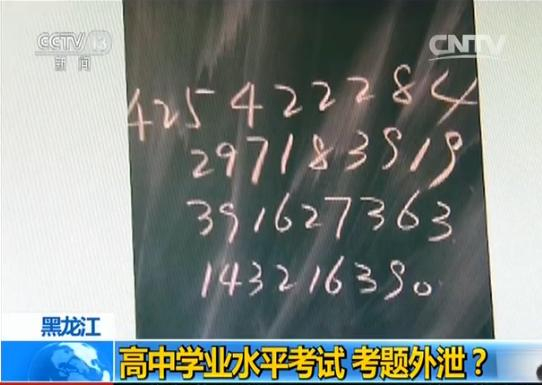 CCTV 13
新闻
CNTV
4254222284
297183919
391627363
143216390
黑龙江
高中学业水平考试 考题外泄？